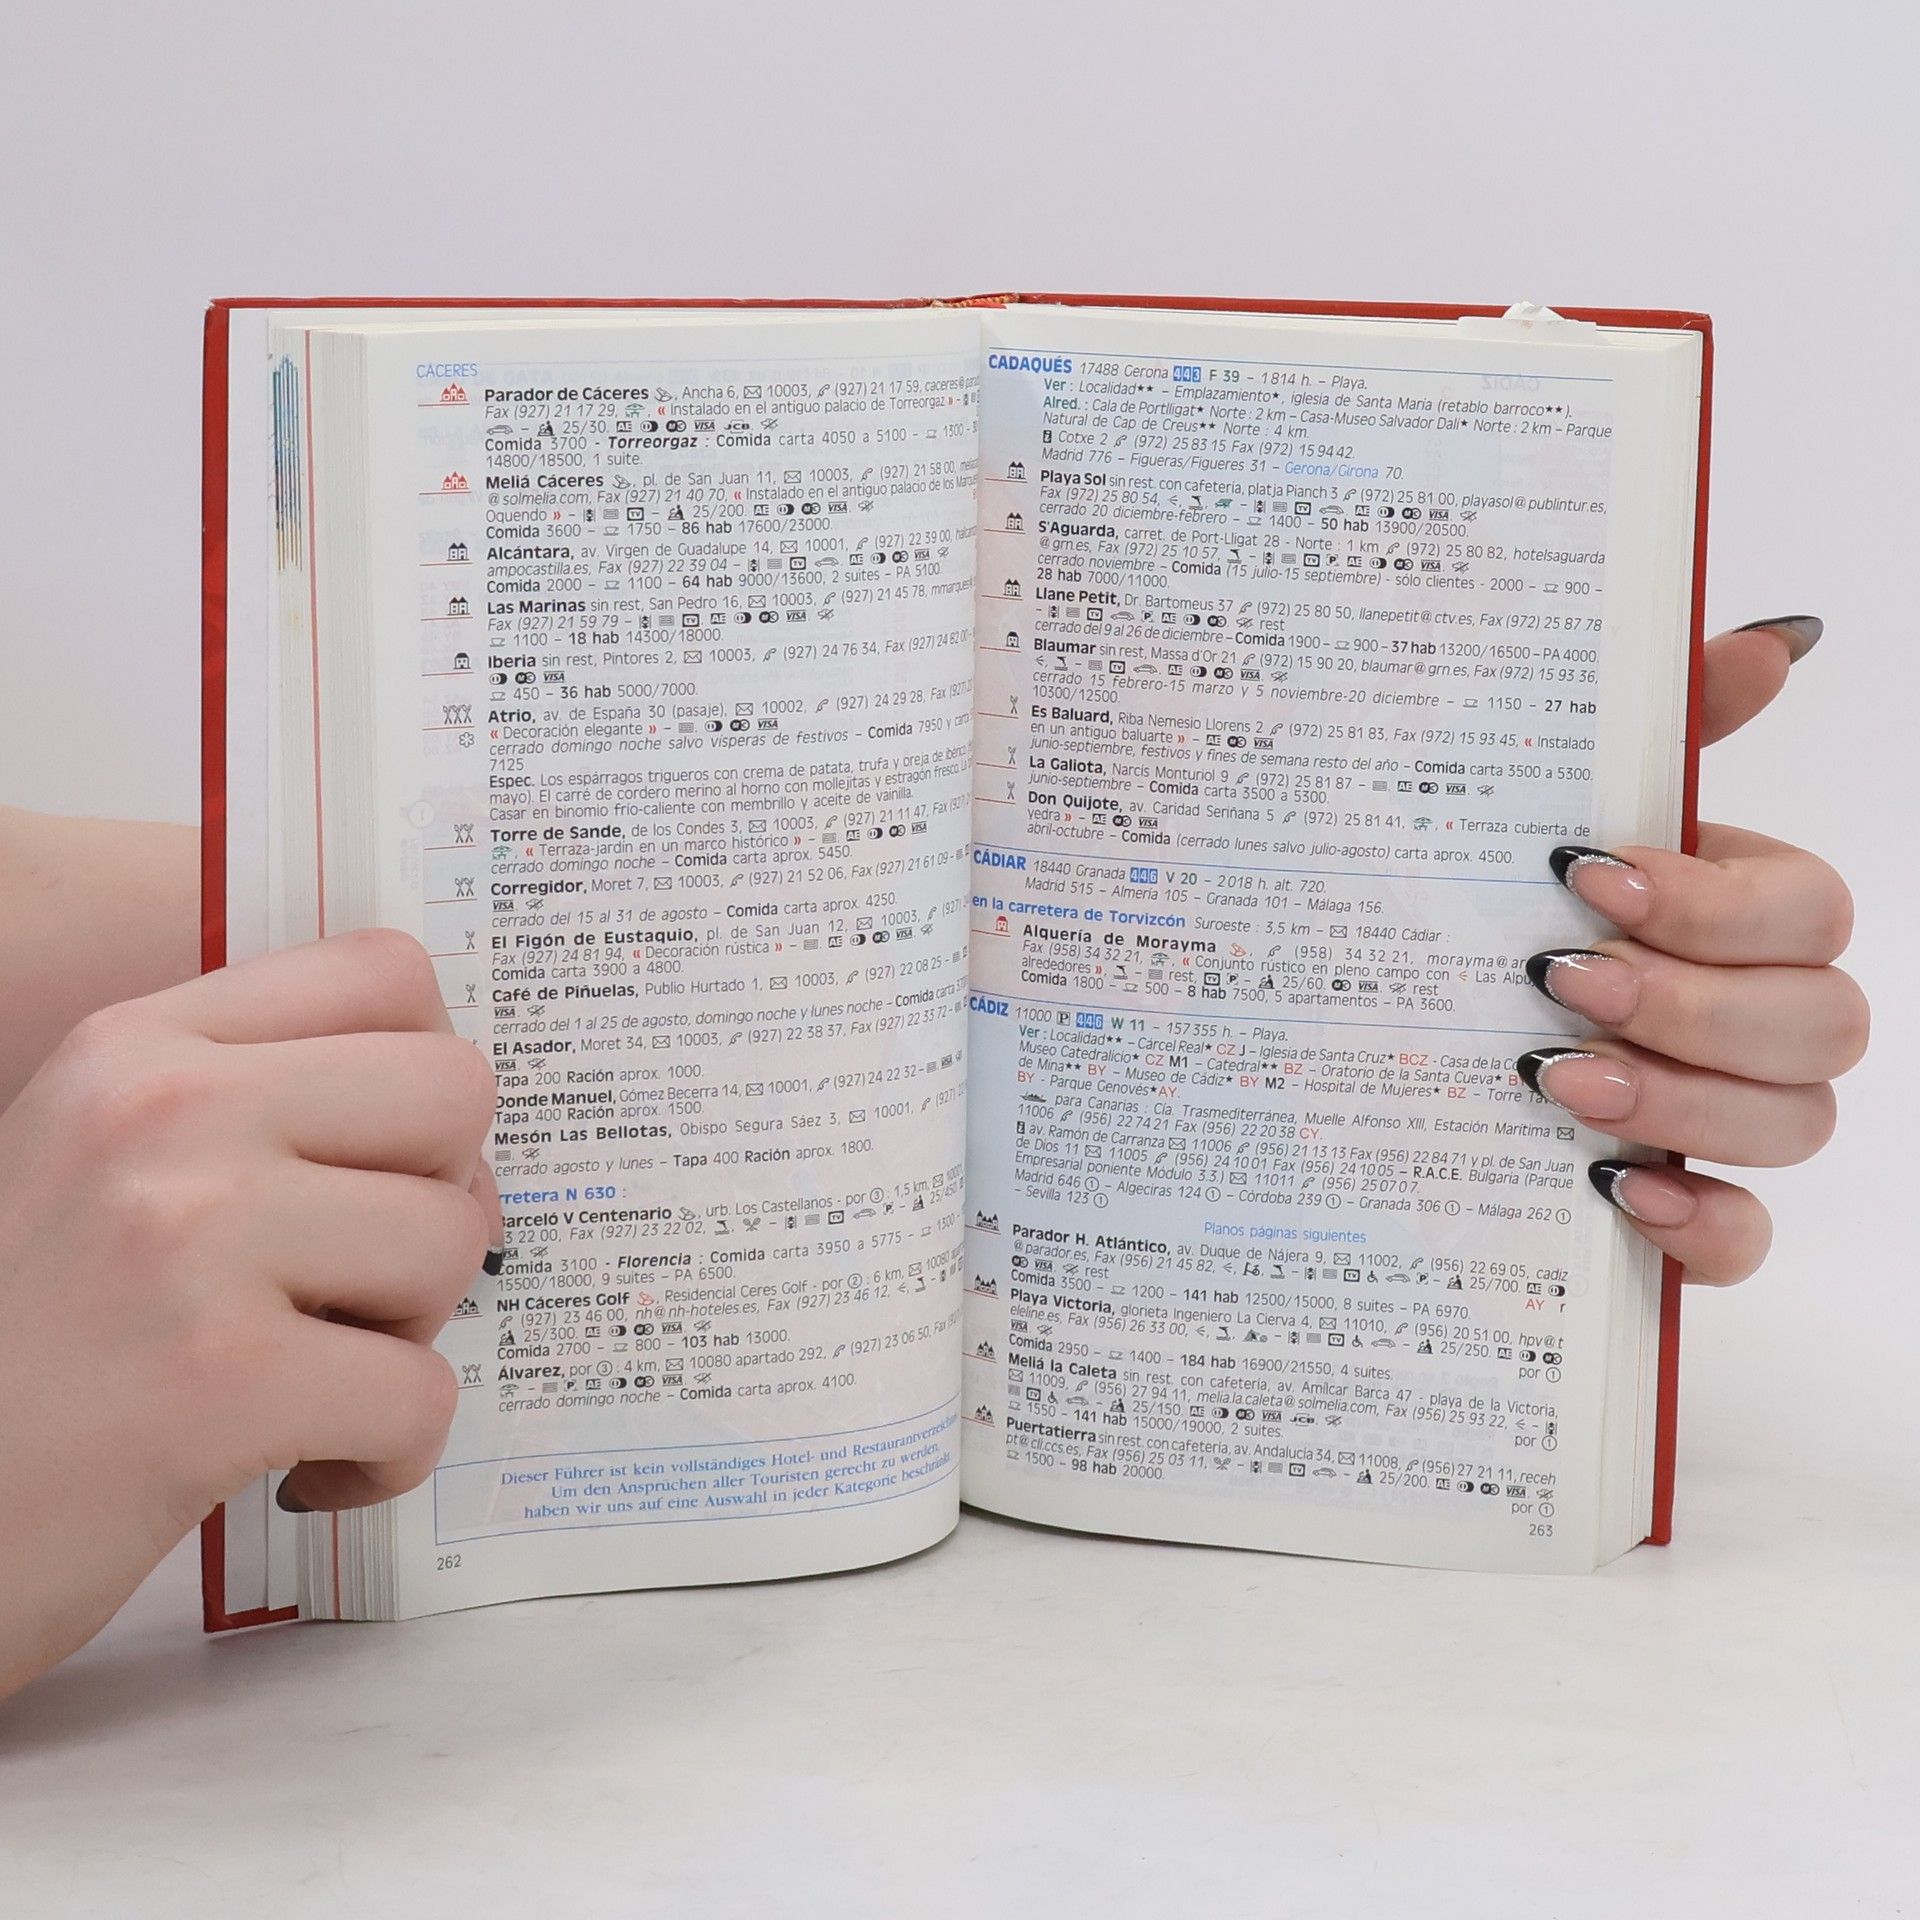 CÁCERES
Parador de Cáceres , Ancha 6, 10003, (927) 21 17 59, caceres@
Fax (927) 21 17 29, , « Instalado en el antiguo palacio de Torreorgaz » –
– 25/30. AE VISA JCB.
Comida 3700 - Torreorgaz : Comida carta 4050 a 5100 – 1300 -
14800/18500, 1 suite.
Meliá Cáceres , pl. de San Juan 11, 10003, (927) 21 58 00,
@solmelia.com, Fax (927) 21 40 70, « Instalado en el antiguo palacio de los
Oquendo » – TV – 25/200. AE VISA.
Comida 3600 – 1750 – 86 hab 17600/23000.
Alcántara, av. Virgen de Guadalupe 14, 10001, (927) 22 39 00,
ampocastilla.es, Fax (927) 22 39 04 – TV . AE VISA
Comida 2000 – 1100 – 64 hab 9000/13600, 2 suites – PA 5100.
Las Marinas sin rest, San Pedro 16, 10003, (927) 21 45 78,
Fax (927) 21 59 79 – TV. AE VISA.
1100 – 18 hab 14300/18000.
Iberia sin rest, Pintores 2, 10003, (927) 24 76 34, Fax (927) 24 82 00 -
VISA
450 – 36 hab 5000/7000.
Atrio, av. de España 30 (pasaje), 10002, (927) 24 29 28, Fax
« Decoración elegante » – . VISA
cerrado domingo noche salvo vísperas de festivos – Comida 7950 y carta
7125
Espec. Los espárragos trigueros con crema de patata, trufa y oreja de ibérico
mayo). El carré de cordero merino al horno con mollejitas y estragón fresco. La
Casar en binomio frío-caliente con membrillo y aceite de vainilla.
Torre de Sande, de los Condes 3, 10003, (927) 21 11 47, Fax
, « Terraza-jardín en un marco histórico » – . AE VISA
cerrado domingo noche – Comida carta aprox. 5450.
Corregidor, Moret 7, 10003, (927) 21 52 06, Fax (927) 21 61 09 –
VISA.
cerrado del 15 al 31 de agosto – Comida carta aprox. 4250.
El Figón de Eustaquio, pl. de San Juan 12, 10003,
Fax (927) 24 81 94, « Decoración rústica » – . AE VISA.
Comida carta 3900 a 4800.
Café de Piñuelas, Publio Hurtado 1, 10003, (927) 22 08 25 –
VISA.
cerrado del 1 al 25 de agosto, domingo noche y lunes noche – Comida carta
El Asador, Moret 34, 10003, (927) 22 38 37, Fax (927) 22 33 72 –
VISA.
Tapa 200 Ración aprox. 1000.
Donde Manuel, Gómez Becerra 14, 10001, (927) 24 22 32 – VISA
Tapa 400 Ración aprox. 1500.
Mesón Las Bellotas, Obispo Segura Sáez 3, 10001,
cerrado agosto y lunes – Tapa 400 Ración aprox. 1800.
rretera N 630 :
Barceló V Centenario , urb. Los Castellanos - por ③ : 1,5 km,
3 22 00, Fax (927) 23 22 02, – TV P – 25/450.
VISA.
Comida 3100 - Florencia : Comida carta 3950 a 5775 – 1300 –
15500/18000, 9 suites – PA 6500.
NH Cáceres Golf , Residencial Ceres Golf - por ② : 6 km, 10080
(927) 23 46 00, nh@nh-hoteles.es, Fax (927) 23 46 12,
25/300. AE VISA.
Comida 2700 – 800 – 103 hab 13000.
Álvarez, por ③ : 4 km, 10080 apartado 292, (927) 23 06 50,
– P. AE VISA.
cerrado domingo noche – Comida carta aprox. 4100.
Dieser Führer ist kein vollständiges Hotel- und
Um den Ansprüchen aller Touristen gerecht zu werden,
haben wir uns auf eine Auswahl in jeder Kategorie beschränkt.
262
CADAQUÉS 17488 Gerona 443 F 39 – 1 814 h. – Playa.
Ver : Localidad★★ – Emplazamiento★, iglesia de Santa María (retablo barroco★★).
Alred. : Cala de Portlligat★ Norte : 2 km – Casa-Museo Salvador Dalí★ Norte : 2 km – Parque
Natural de Cap de Creus★★ Norte : 4 km.
Cotxe 2 (972) 25 83 15 Fax (972) 15 94 42.
Madrid 776 – Figueras/Figueres 31 – Gerona/Girona 70.
Playa Sol sin rest. con cafetería, platja Pianch 3 (972) 25 81 00, playasol@publintur.es,
Fax (972) 25 80 54, TV . AE VISA.
cerrado 20 diciembre-febrero – 1400 – 50 hab 13900/20500.
S'Aguarda, carret. de Port-Lligat 28 - Norte : 1 km (972) 25 80 82, hotelsaguarda
@grn.es, Fax (972) 25 10 57, – TV P. AE VISA.
cerrado noviembre – Comida (15 julio-15 septiembre) - sólo clientes - 2000 – 900 –
28 hab 7000/11000.
Llane Petit, Dr. Bartomeus 37 (972) 25 80 50, llanepetit@ctv.es, Fax (972) 25 87 78
– TV P. AE VISA. rest
cerrado del 9 al 26 de diciembre – Comida 1900 – 900 – 37 hab 13200/16500 – PA 4000.
Blaumar sin rest, Massa d'Or 21 (972) 15 90 20, blaumar@grn.es, Fax (972) 15 93 36,
– TV . AE VISA.
cerrado 15 febrero-15 marzo y 5 noviembre-20 diciembre – 1150 – 27 hab
10300/12500.
Es Baluard, Riba Nemesio Llorens 2 (972) 25 81 83, Fax (972) 15 93 45, « Instalado
en un antiguo baluarte » – AE VISA
junio-septiembre, festivos y fines de semana resto del año – Comida carta 3500 a 5300.
La Galiota, Narcís Monturiol 9 (972) 25 81 87 – . AE VISA.
junio-septiembre – Comida carta 3500 a 5300.
Don Quijote, av. Caridad Seriñana 5 (972) 25 81 41, , « Terraza cubierta de
yedra » – AE VISA
abril-octubre – Comida (cerrado lunes salvo julio-agosto) carta aprox. 4500.
CÁDIAR 18440 Granada 446 V 20 – 2 018 h. alt. 720.
Madrid 515 – Almería 105 – Granada 101 – Málaga 156.
en la carretera de Torvizcón Suroeste : 3,5 km – 18440 Cádiar :
Alquería de Morayma , (958) 34 32 21, morayma@
Fax (958) 34 32 21, , « Conjunto rústico en pleno campo con Las
alrededores », – rest, TV P – 25/60. VISA. rest
Comida 1800 – 500 – 8 hab 7500, 5 apartamentos – PA 3600.
CÁDIZ 11000 P 446 W 11 – 157 355 h. – Playa.
Ver : Localidad★★ – Cárcel Real★ CZ J – Iglesia de Santa Cruz★ BCZ - Casa de la
Museo Catedralicio★ CZ M1 – Catedral★★ BZ – Oratorio de la Santa Cueva★
de Mina★★ BY – Museo de Cádiz★ BY M2 – Hospital de Mujeres★ BZ – Torre
BY - Parque Genovés★ AY.
para Canarias : Cía. Trasmediterránea, Muelle Alfonso XIII, Estación Marítima
11006 (956) 22 74 21 Fax (956) 22 20 38 CY.
av. Ramón de Carranza 11006 (956) 21 13 13 Fax (956) 22 84 71 y pl. de San Juan
de Dios 11 11005 (956) 24 10 01 Fax (956) 24 10 05 – R.A.C.E. Bulgaria (Parque
Empresarial poniente Módulo 3.3.) 11011 (956) 25 07 07.
Madrid 646 ① – Algeciras 124 ① – Córdoba 239 ① – Granada 306 ① – Málaga 262 ①
– Sevilla 123 ①
Planos páginas siguientes
Parador H. Atlántico, av. Duque de Nájera 9, 11002, (956) 22 69 05, cadiz
@parador.es, Fax (956) 21 45 82, – TV P – 25/700. AE
VISA. rest
AY r
Comida 3500 – 1200 – 141 hab 12500/15000, 8 suites – PA 6970.
Playa Victoria, glorieta Ingeniero La Cierva 4, 11010, (956) 20 51 00, hpv@t
eleline.es, Fax (956) 26 33 00, – TV – 25/250. AE
VISA.
por ①
Comida 2950 – 1400 – 184 hab 16900/21550, 4 suites.
Meliá la Caleta sin rest. con cafetería, av. Amílcar Barca 47 - playa de la Victoria,
11009, (956) 27 94 11, melia.la.caleta@solmelia.com, Fax (956) 25 93 22, –
TV – 25/150. AE VISA JCB.
por ①
1550 – 141 hab 15000/19000, 2 suites.
Puertatierra sin rest. con cafetería, av. Andalucía 34, 11008, (956) 27 21 11, receh
pt@cli.ccs.es, Fax (956) 25 03 11, – TV – 25/200. AE VISA.
1500 – 98 hab 20000.
por ①
263